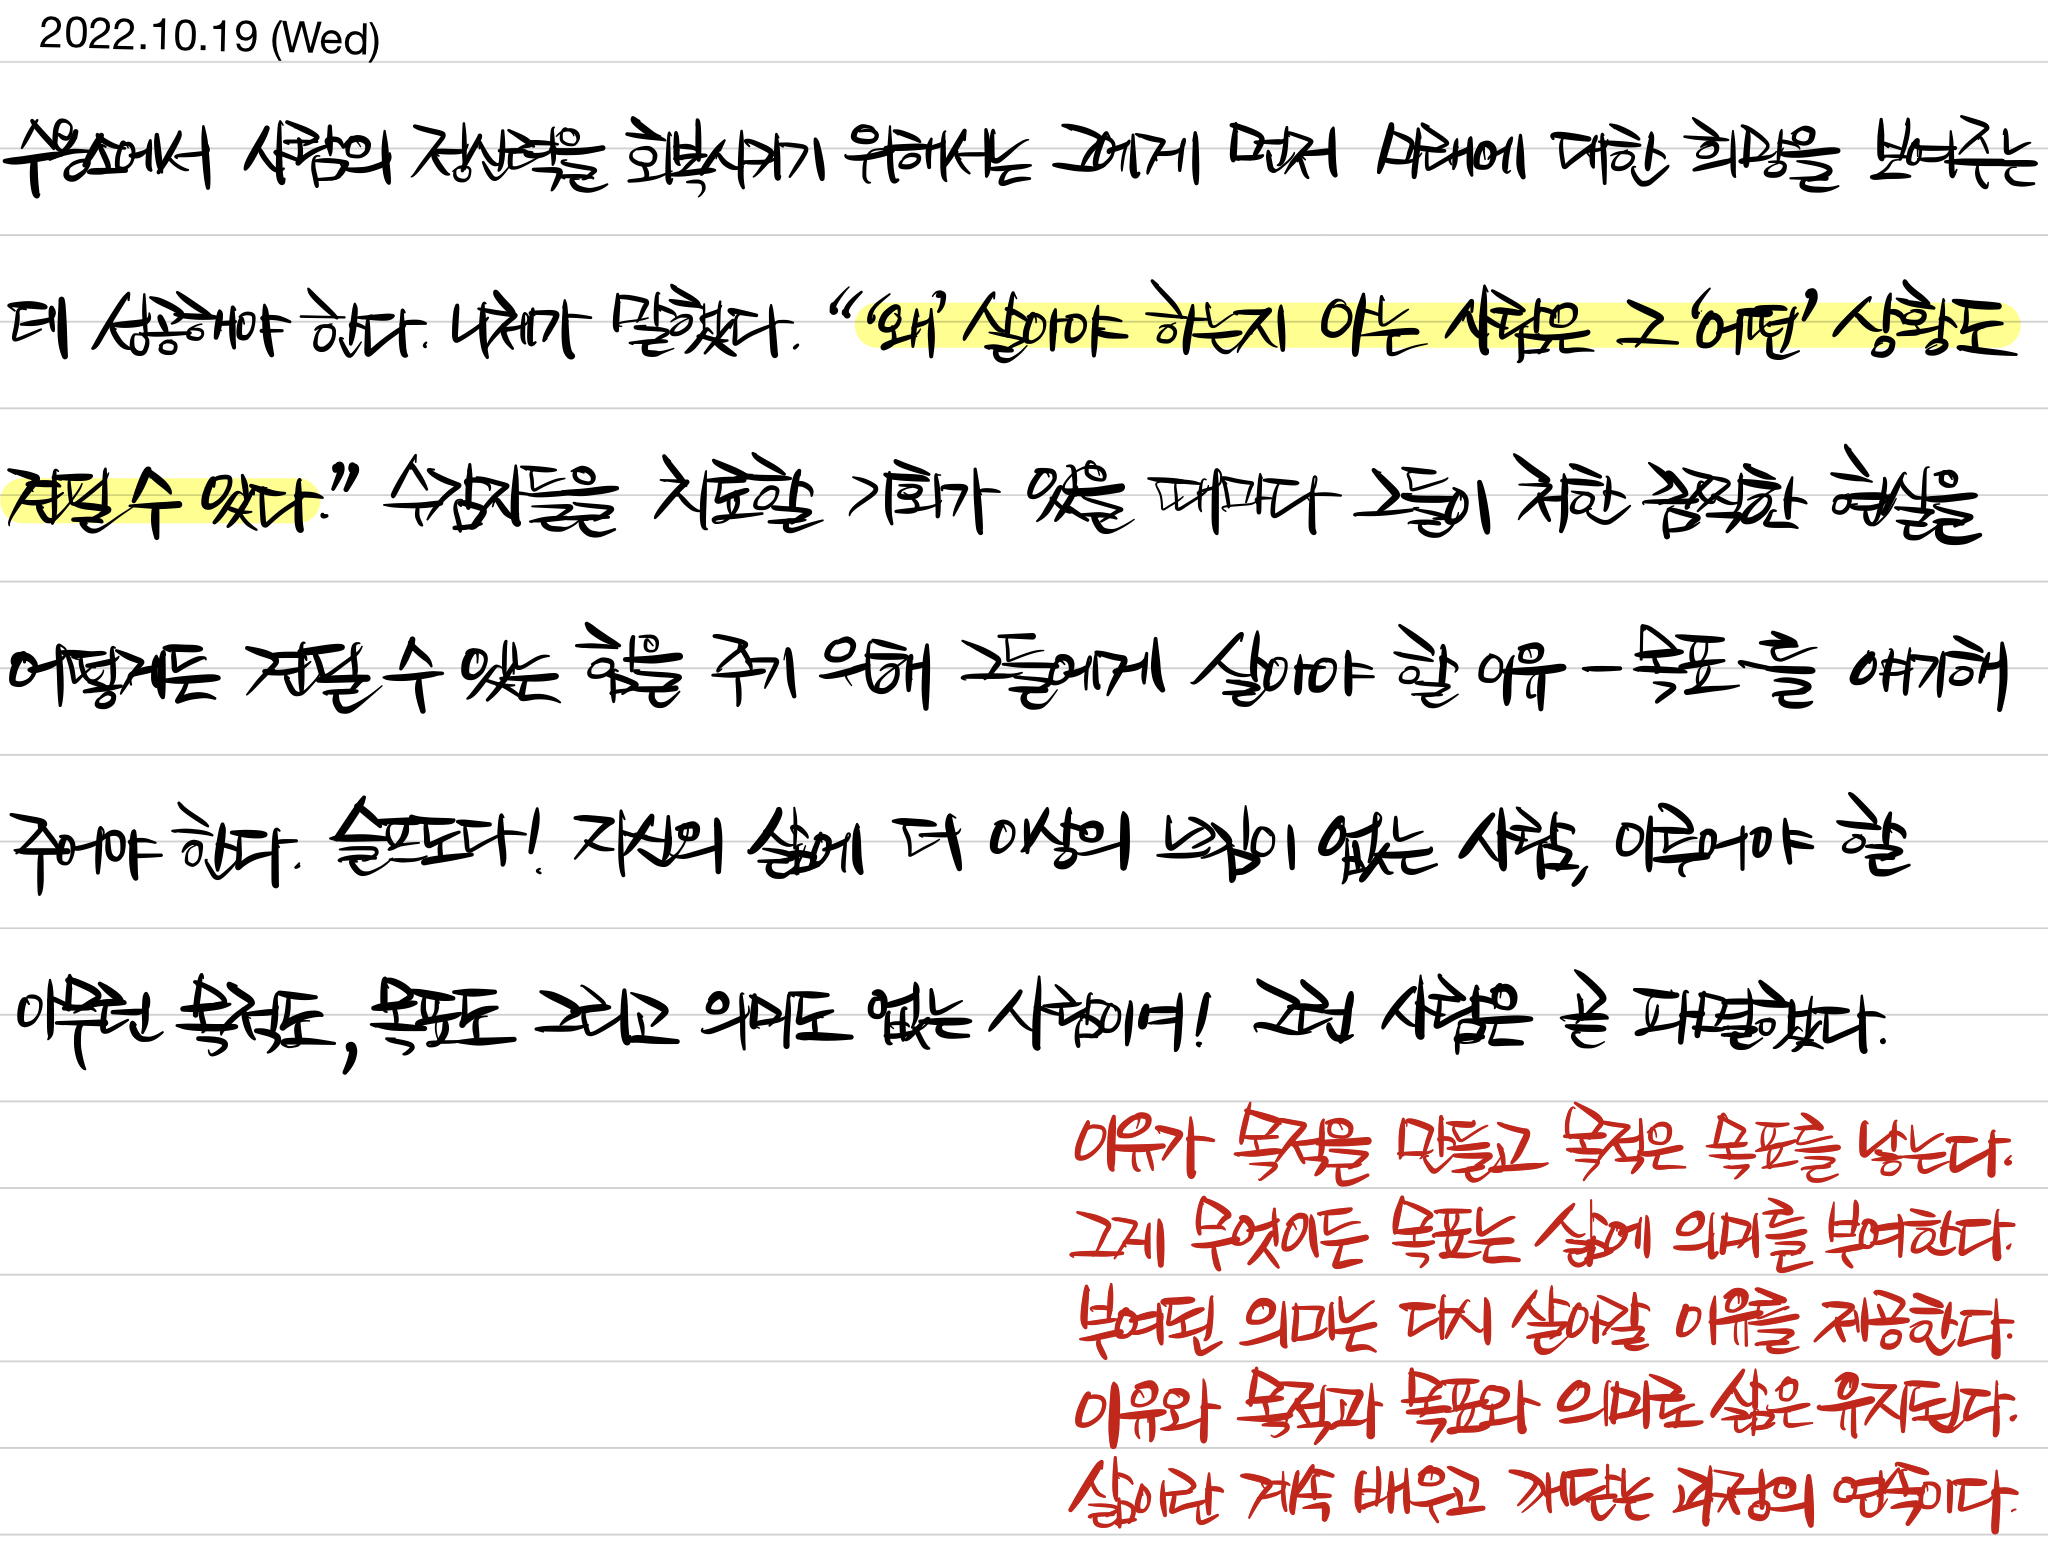 2022.10.19 (Wed)
수용소에서 사람의 정신력을 회복시키기 위해서는 그에게 먼저 미래에 대한 희망을 보여주는
데 성공해야 한다. 니체가 말했다. “‘왜’ 살아야 하는지 아는 사람은 그 ‘어떤’ 상황도
견딜 수 있다.” 수감자들을 치료할 기회가 있을 때마다 그들이 처한 끔찍한 현실을
어떻게든 견딜 수 있는 힘을 주기 위해 그들에게 살아야 할 이유 - 목표 - 를 얘기해
주어야 한다. 슬프도다! 자신의 삶에 더 이상의 느낌이 없는 사람, 이루어야 할
아무런 목적도, 목표도 그리고 의미도 없는 사람이여! 그런 사람은 곧 파멸했다.
이유가 목적을 만들고 목적은 목표를 낳는다.
그게 무엇이든 목표는 삶에 의미를 부여한다.
부여된 의미는 다시 살아갈 이유를 제공한다.
이유와 목적과 목표와 의미로 삶은 유지된다.
삶이란 계속 배우고 깨닫는 과정의 연속이다.